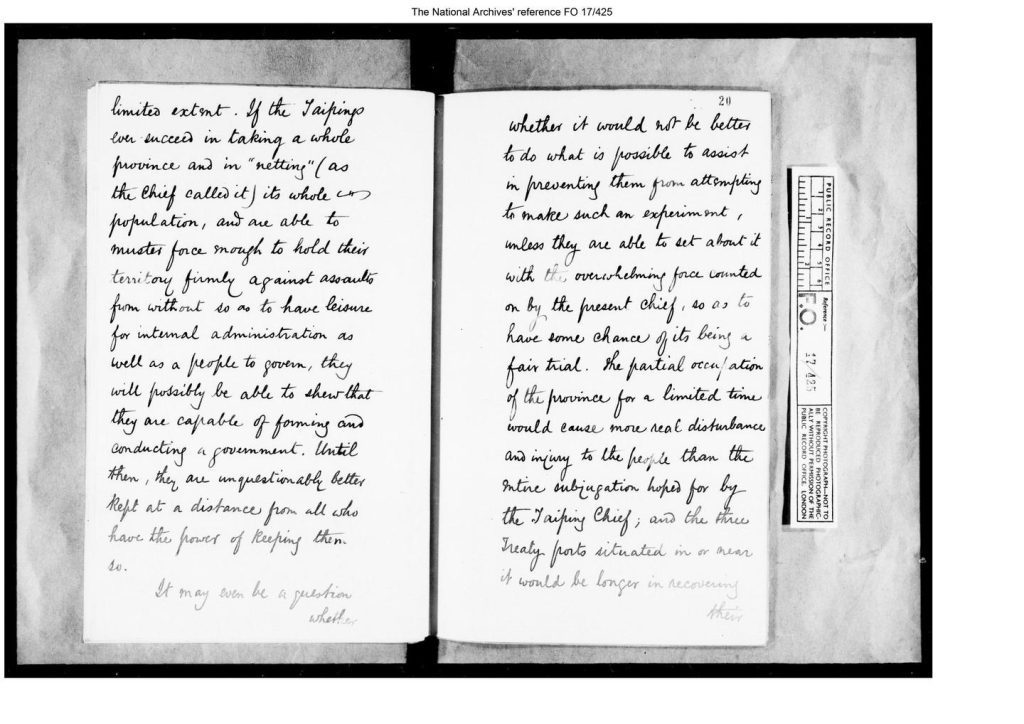 The National Archives' reference FO 17/425
limited extent. If the Taipings
ever succeed in taking a whole
province and in "netting" (as
the Chief called it) its whole
population, and are able to
muster force enough to hold their
territory firmly against assaults
from without so as to have leisure
for internal administration as
well as a people to govern, they
will possibly be able to shew that
they are capable of forming and
conducting a government. Until
then, they are unquestionably better
kept at a distance from all who
have the power of keeping them
so.
It may even be a question
whether
20
whether it would not be better
to do what is possible to assist
in preventing them from attempting
to make such an experiment,
unless they are able to set about it
with the overwhelming force counted
on by the present Chief, so as to
have some chance of its being a
fair trial. The partial occupation
of the province for a limited time
would cause more real disturbance
and injury to the people than the
entire subjugation hoped for by
the Taiping Chief; and the three
Treaty ports situated in or near
it would be longer in recovering
their
PUBLIC RECORD OFFICE
1 2 3 4 5 6
Reference:-
F.O.
17/425
COPYRIGHT PHOTOGRAPH—NOT TO
BE REPRODUCED PHOTOGRAPHIC-
ALLY WITHOUT PERMISSION OF THE
PUBLIC RECORD OFFICE, LONDON